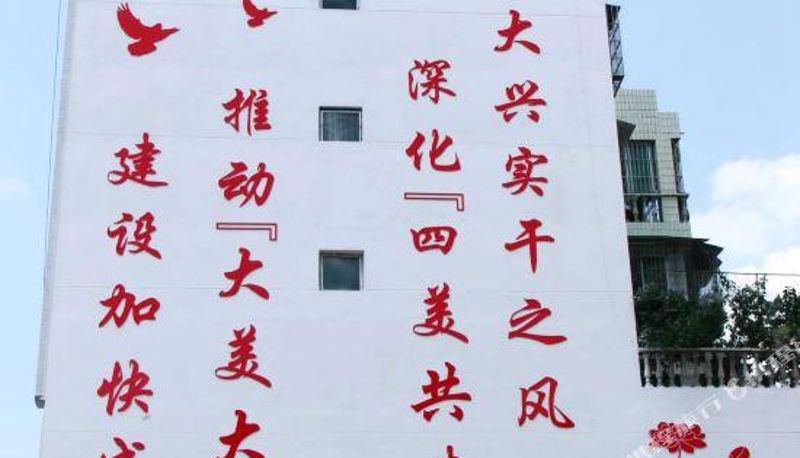 大兴实干之风
深化『四美共
推动『大美大
建设加快